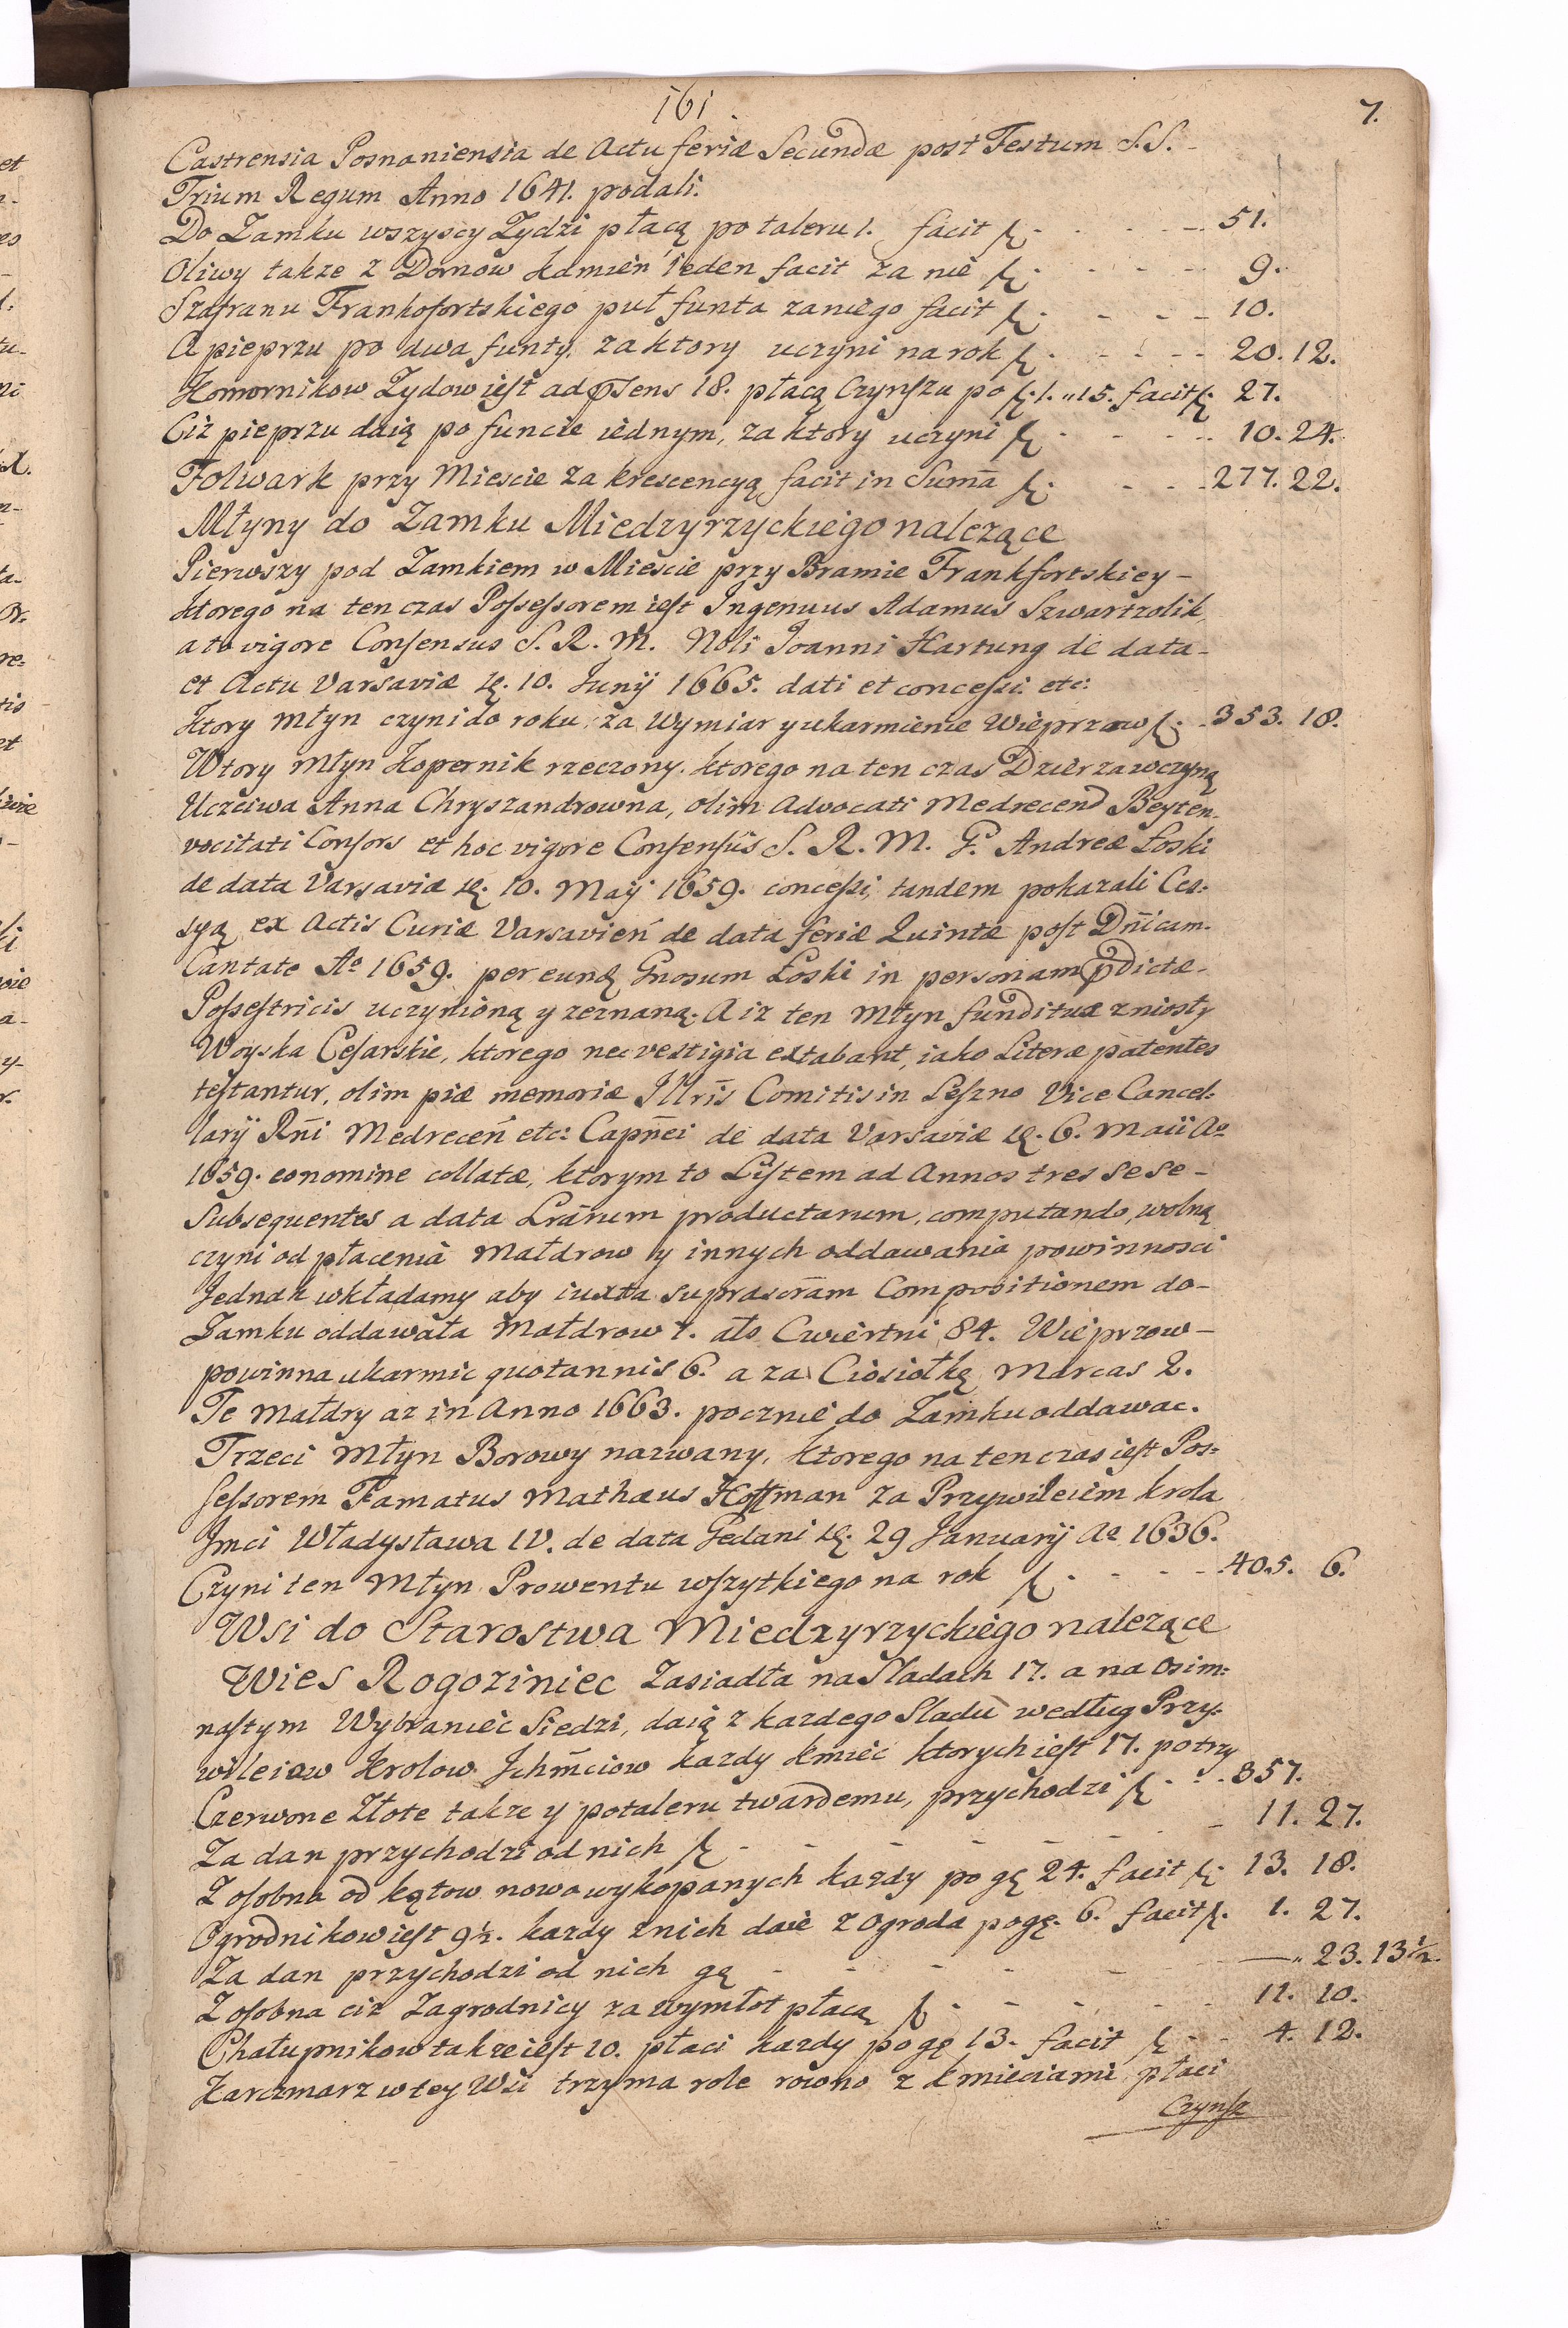 161.
7.
Castrensia Posnaniensia de Actu feriæ Secundæ post Festum S.S.
Trium Regum Anno 1641. podali.
Do Zamku wszyscy Zydzi płacą po taleru 1. facit f. 51.
Oliwy takze z Domow kamien ieden facit za nie f. 9.
Szafranu Frankofortskiego puł funta za niego facit f. 10.
A pieprzu po dwa funty. za ktory uczyni na rok f. 20. 12.
Komornikow Zydow iest ad p̄sens 18. płacą Czynszu po f. 1. „ 15. facit f. 27.
Ciz pieprzu daią po funcie iednym, za ktory uczyni f. 10. 24.
Folwark przy Miescie za krescencyą facit in Sum̄a f. 277. 22.
Młyny do Zamku Miedzyrzyckiego nalezące
Pierwszy pod Zamkiem w Miescie przy Bramie Frankfortskiey
ktorego na ten czas Possessorem iest Ingenuus Adamus Szwartzolik,
a to vigore Consensus S. R. M. Nobli Joanni Hartung de data
et Actu Varsaviæ d. 10. Junij 1665. dati et concessi etc:
Ktory młyn czyni do roku za Wymiar y ukarmienie Wieprzow f. 353. 18.
Wtory Młyn Kopernik rzeczony. ktorego na ten czas Dzierzawczyną
Uczciwa Anna Chryszandrowna, olim Advocati Medrecend Beyten.
vocitati Consors et hoc vigore Consensûs S. R. M. G. Andreæ Łoski
de data Varsaviæ d. 10. Maij 1659. concessi, tandem pokazali Ces:
syą ex Actis Curiæ Varsavień de data feriæ Quintæ post Dn̄icam.
Cantate Aº 1659. per eund Gnosum Łoski in personam p̄dictæ
Possestricis uczynioną y zeznaną. A iz ten młyn funditus zniosły
Woyska Cesarskie, ktorego nec vestigia extabant, iako Literæ patentes
testantur, olim piæ memoriæ Illris̄ Comitis in Leszno Vice Cancel:
larij Rn̄i Medreceń etc: Capn̄ei de data Varsaviæ d. 6. Maii Aº
1659. eo nomine collatæ, ktorym to Listem ad Annos tres sese
Subsequentes a data Lrārum productarum, computando, wolną
czyni od płacenia Małdrow y innych oddawania powinnosci
Jednak wkładamy aby iuxta suprascrām Compositionem do
Zamku oddawała Małdrow 7. ałs Cwiertni 84. Wieprzow
powinna ukarmic quotannis 6. a za Ciosiołkę Marcas 2.
Te małdry az in Anno 1663. pocznie do Zamku oddawac.
Trzeci Młyn Borowy nazwany, ktorego na ten czas iest Pos:
sessorem Famatus Mathæus Hoffman za Przywileiem krola
Jmci Władysława IV. de data Gedani d. 29 Januarij Aº 1636.
Czyni ten młyn Prowentu wszytkiego na rok f. 405. 6.
Wsi do Starostwa Miedzyrzyckiego nalezące
Wies Rogoziniec Zasiadła na Sladach 17. a na osim:
nastym Wybraniec Siedzi, daią z kazdego Sladu według Przy:
wileiow Krolow Ichm̄ciow kazdy kmiec ktorych iest 17. po trzy
Czerwone Złote takze y po taleru twardemu, przychodzi f. 357.
Za dan przychodzi od nich f. 11. 27.
Z osobna od kątow nowo wykopanych kazdy po gę 24. facit f. 13. 18.
Ogrodnikow iest 9½. kazdy z nich daie z Ogroda po gę. 6. facit f. 1. 27.
Za dan przychodzi od nich gę — „ 23. 13½.
Z osobna ciz Zagrodnicy za wymłot płacą f. 11. 10.
Chałupnikow takze iest 10. płaci kazdy po gę 13. facit f. 4. 12.
Karczmarz w tey Wsi trzyma role rowno z kmieciami płaci
Czynsz